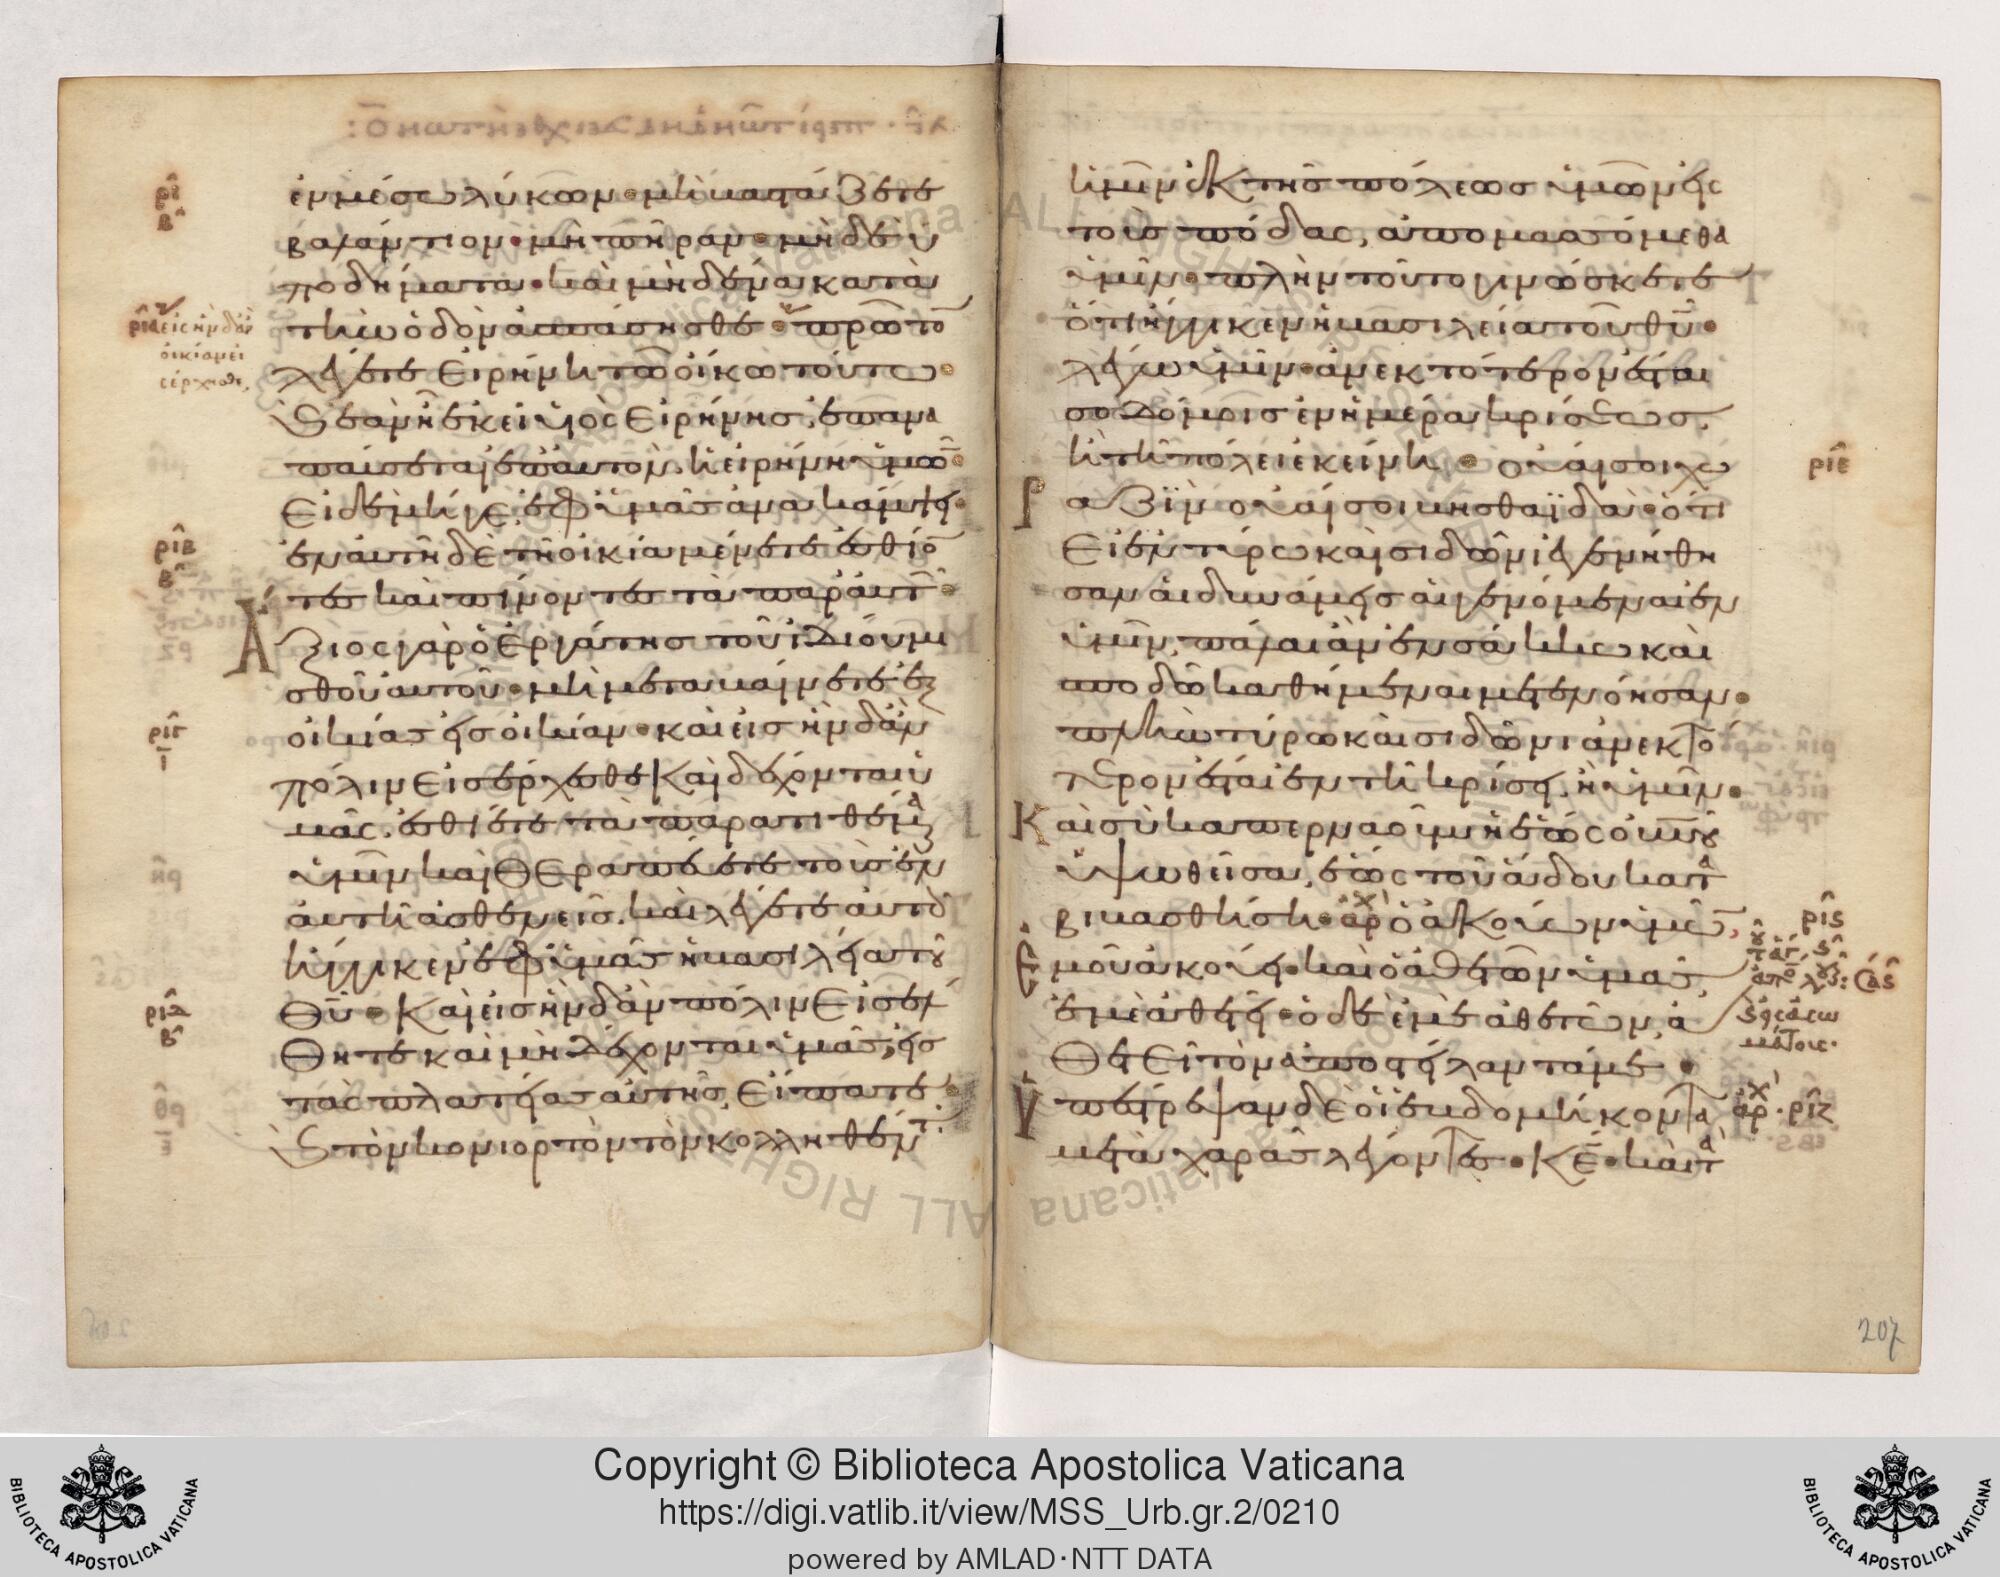 ἐν μέσω λύκων · μὴ βαστάζετε
βαλάντιον · μὴ πήραν · μὴ δὲ ὑ
ποδήματα · καὶ μηδένα κατὰ
τὴν ὁδὸν ἀσπάσησθε · πρῶτο
λέγετε Εἰρήνη τῶ οἴκω τούτω ·
κἂν ἦ ἐκεῖ υἱὸς εἰρήνης, ἐπανα
παύσεται ἐπ αὐτὸν ἡ εἰρήνη ὑμῶ ·
Εἰ δὲ μήγε, ἐφ ὑμᾶς ἀνακάμψει ·
ἐν αὐτῆ δὲ τῆ οἰκία μένετε ἐσθίο
τες καὶ πίνοντες τὰ παρ αὐτ ·
Ἄξιος γὰρ ὁ ἐργάτης τοῦ ἰδίου μι
σθοῦ αὐτοῦ · μὴ μεταβαίνετε ἐξ
οἰκίας εἰς οἰκίαν · καὶ εἰς ἣν δ ἂν
πόλιν εἰσέρχεσθε καὶ δέχονται ὑ
μᾶς, ἐσθίετε τὰ παρατιθέμ
ὑμῖν καὶ θεραπεύετε τοὺς ἐν
αὐτῆ ἀσθενεῖς, καὶ λέγετε αὐτο
ἤγγικεν ἐφ ὑμᾶς ἡ βασιλεία τοῦ
Θυ · Καὶ εἰς ἣν δ ἂν πόλιν εἰσέλ
θητε καὶ μὴ δέχονται ὑμᾶς, εἰς
τὰς πλατείας αὐτῆς, εἴπατε ·
καὶ τὸν κονιορτὸν τὸν κολληθέντ
ἡμῖν ἐκ τῆς πόλεως ὑμῶν εἰς
τοὺς πόδας, ἀπομασσόμεθα
ὑμῖν · πλὴν τοῦτο γινώσκετε
ὅτι ἤγγικεν ἡ βασιλεία τοῦ θυ ·
λέγω ὑμῖν · ἀνεκτότερον ἔσται
σοδόμοις ἐν ἡμέρα κρίσεως,
ἢ τῆ πόλει ἐκείνη · οὐαί σοι χω
ραζϊν οὐαί σοι βηθσαϊδὰ · ὅτι
Εἰ ἐν τύρω καὶ σιδῶνι ἐγενήθη
σαν αἱ δυνάμεις αἱ γενόμεναι ἐν
ὑμῖν, πάλαι ἂν ἐν σάκκω καὶ
σποδῶ καθήμεναι μετενόησαν ·
πλὴν τύρω καὶ σιδῶνι ἀνεκτό
τερον ἔσται ἐν τῆ κρίσει, ἢ ὑμῖν ·
Καὶ σὺ καπερναοὺμ ἡ ἕως οὐνοῦ
ὑψωθεῖσα, ἕως τοῦ ἅδου κατα
βιβασθήση · ὁ ἀκούων ὑμῶ,
ἐμοῦ ἀκούει · καὶ ὁ ἀθετῶν ὑμᾶς,
ἐμὲ ἀθετεῖ · ὁ δὲ ἐμὲ ἀθετῶν, ἀ
Θετεῖ τὸν ἀποστείλαντά με ·
Ὑπέστρεψαν δὲ οἱ ἑβδομήκοντα
μετὰ χαρᾶς λέγοντες · Κε · καὶ τὰ
ρι
β
ρια
εἰς ἣν δ ἂν
οἰκίαν εἰ
σέρχησθε
ριβ
β
ριγ
ι
ριδ
β
ριε
ρις
ριζ
207
Copyright © Biblioteca Apostolica Vaticana
https://digi.vatlib.it/view/MSS_Urb.gr.2/0210
powered by AMLAD·NTT DATA
BIBLIOTECA APOSTOLICA VATICANA
BIBLIOTECA APOSTOLICA VATICANA